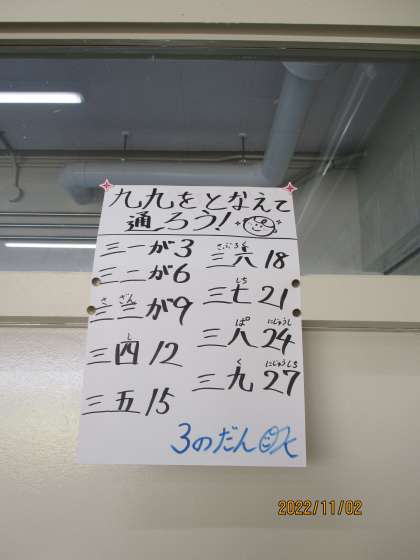 九九をとなえて
通ろう!
三一が3
三二が6
さざん
三三が9
し
三四 12
三五 15
さぶろく
三六 18
しち
三七 21
ぱ にじゅうし
三八 24
く にじゅうしち
三九 27
3のだん OK
2022/11/02